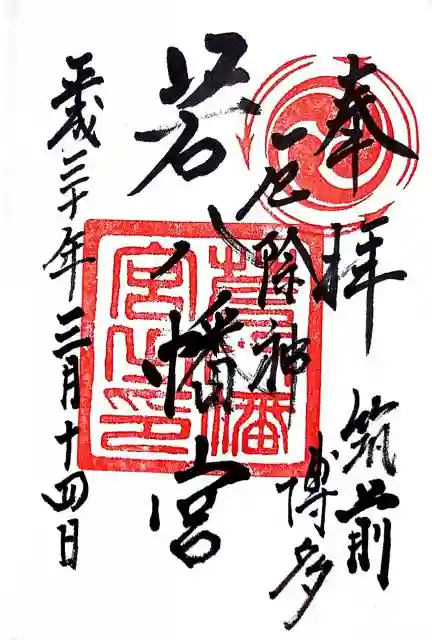 奉拝
筑前
厄除神
博多
若八幡宮
平成三十年三月十四日
若八幡
宮之印